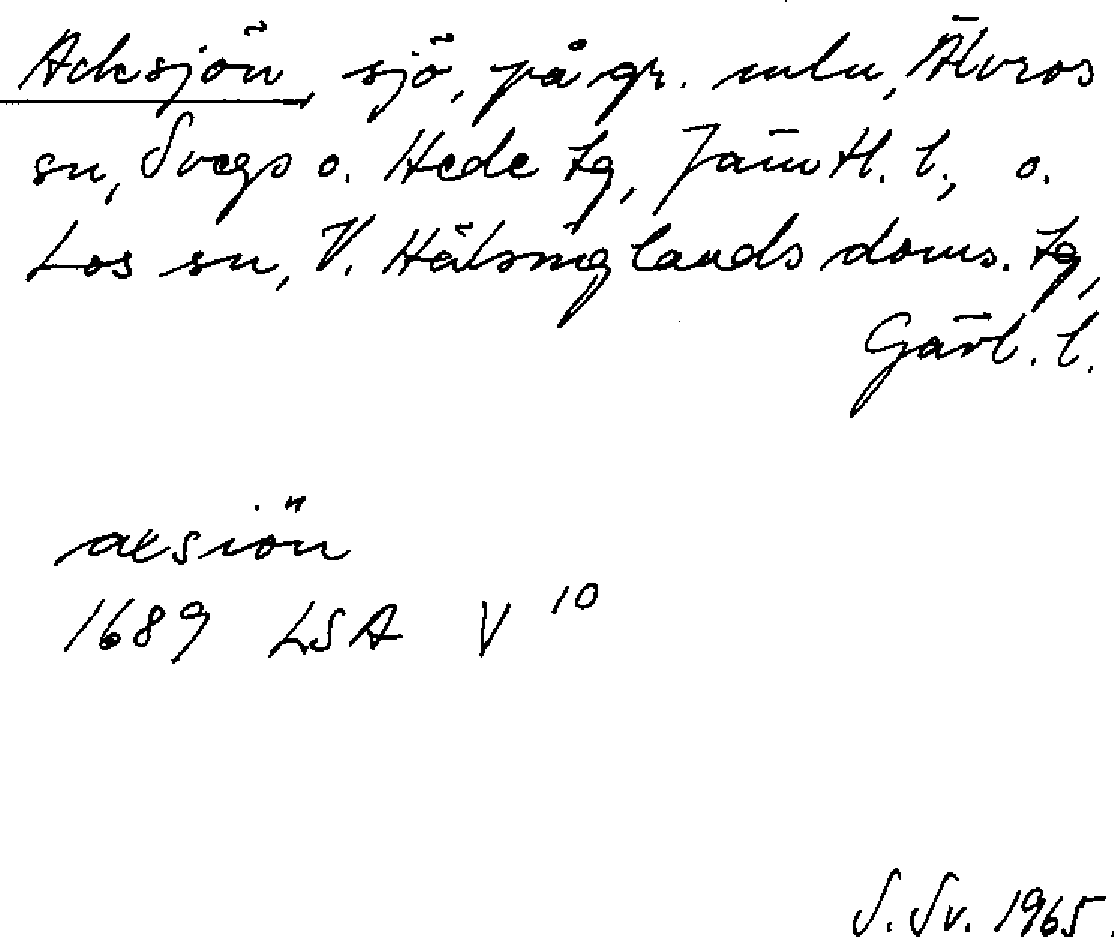 Acksjön, sjö, på gr. mln, Älvros
sn, Svegs o. Hede tg, Jämtl. l., o.
Los sn, V. Hälsinglands doms. tg,
Gävl. l.
aksiön
1689 LSA V 10
S. Sv. 1965.